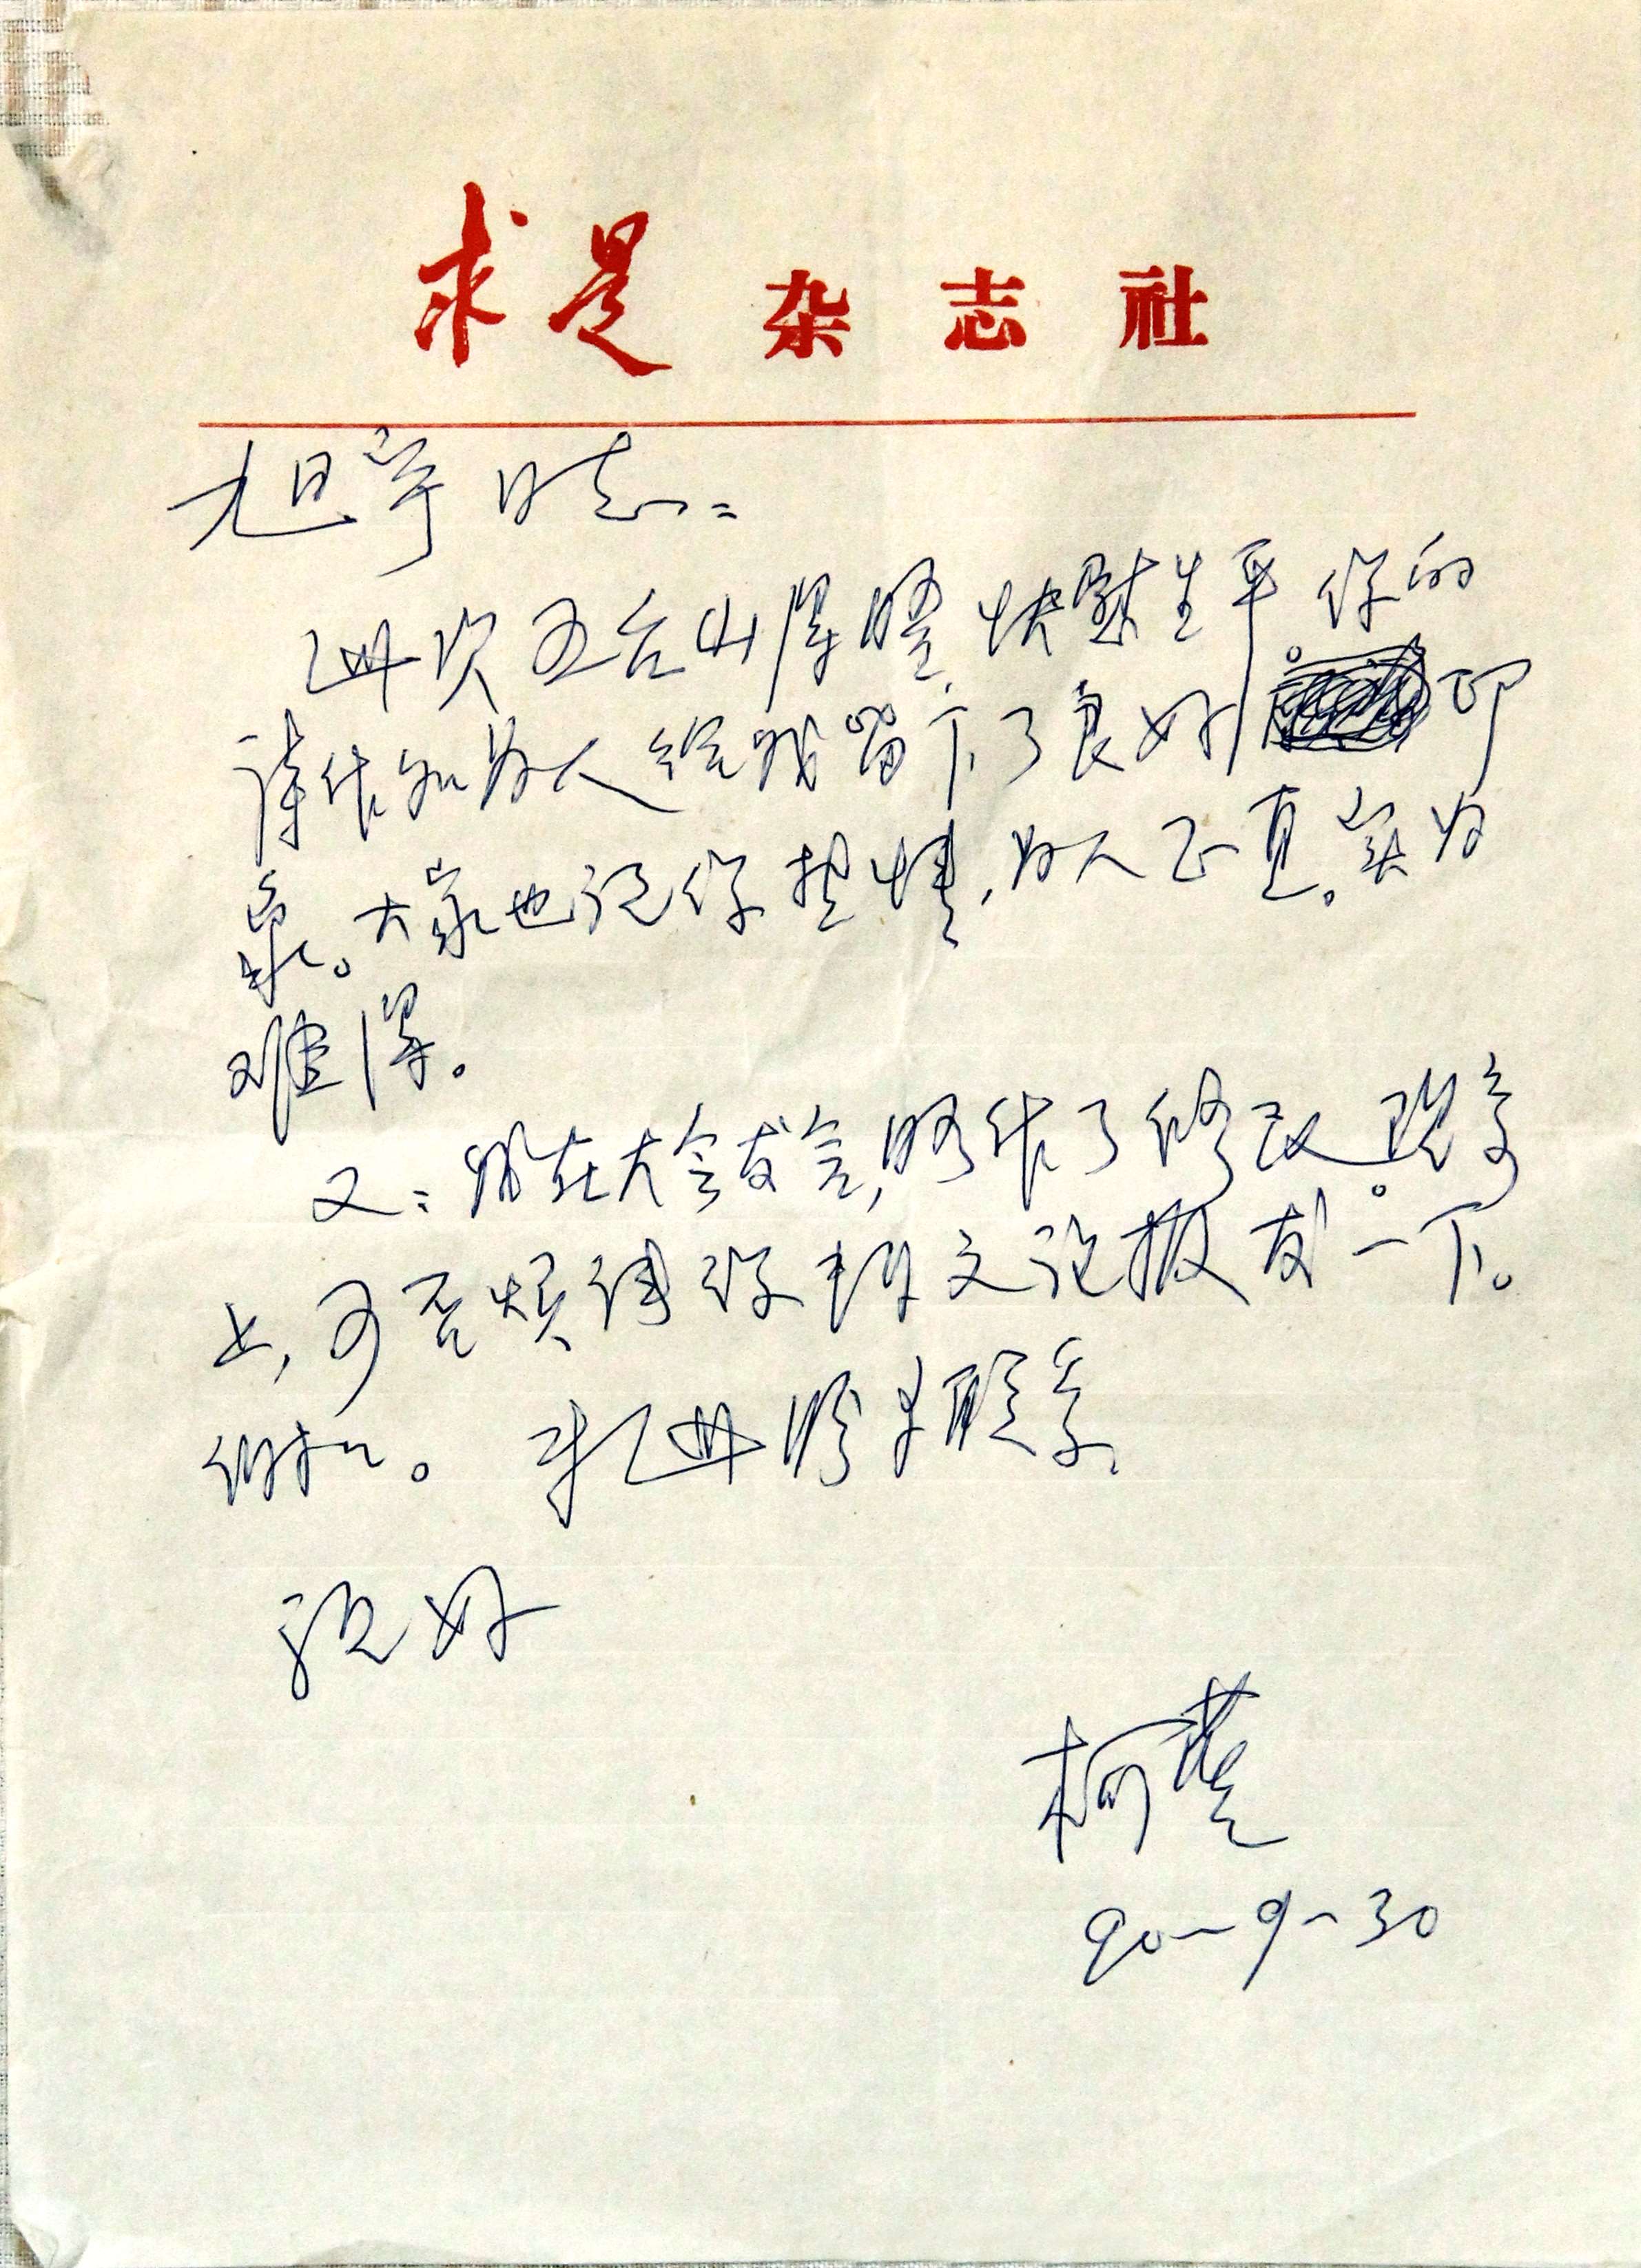 求是杂志社
旭宇同志：
此次五台山得晤，快慰生平。你的
诗作和为人给我留下了良好印
象。大家也说你热情，为人正直。实为
难得。
又：我在大会发言，略作了修改。现寄
上，可否烦请你择文论报发一下。
谢谢。来此盼多联系。
祝好
柯蓝
90-9-30